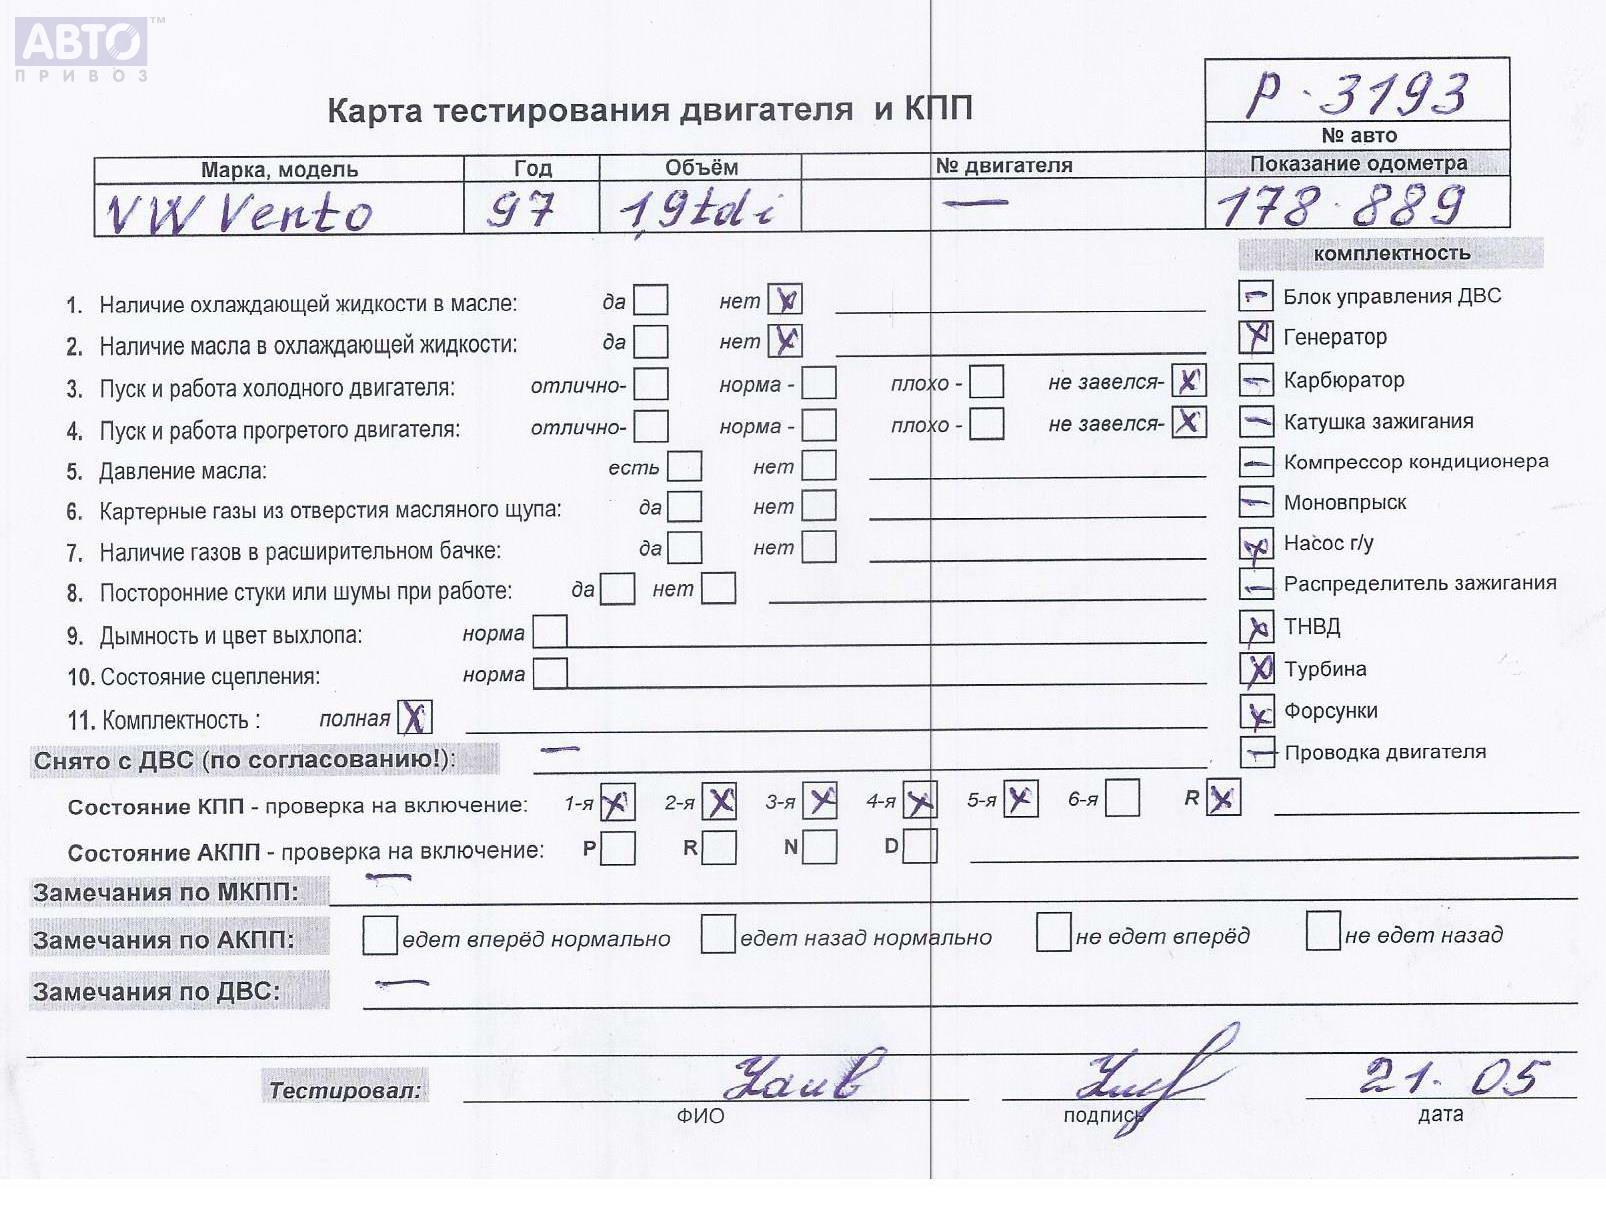 АВТО™
ПРИВОЗ
Р - 3193
№ авто
Карта тестирования двигателя и КПП
Марка, модель Год Объём № двигателя Показание одометра
VW Vento 97 1,9tdi — 178 889
комплектность
1. Наличие охлаждающей жидкости в масле: да нет X
2. Наличие масла в охлаждающей жидкости: да нет X
3. Пуск и работа холодного двигателя: отлично- норма - плохо - не завелся- X
4. Пуск и работа прогретого двигателя: отлично- норма - плохо - не завелся- X
5. Давление масла: есть нет
6. Картерные газы из отверстия масляного щупа: да нет
7. Наличие газов в расширительном бачке: да нет
8. Посторонние стуки или шумы при работе: да нет
9. Дымность и цвет выхлопа: норма
10. Состояние сцепления: норма
11. Комплектность : полная X
— Блок управления ДВС
X Генератор
— Карбюратор
— Катушка зажигания
— Компрессор кондиционера
— Моновпрыск
X Насос г/у
— Распределитель зажигания
X ТНВД
X Турбина
X Форсунки
— Проводка двигателя
Снято с ДВС (по согласованию!): —
Состояние КПП - проверка на включение: 1-я X 2-я X 3-я X 4-я X 5-я X 6-я R X
Состояние АКПП - проверка на включение: P R N D
Замечания по МКПП: —
Замечания по АКПП: едет вперёд нормально едет назад нормально не едет вперёд не едет назад
Замечания по ДВС: —
Тестировал: 21. 05
ФИО подпись дата